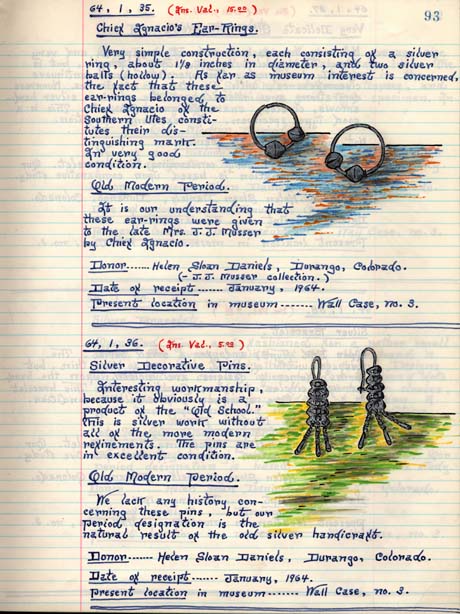 93
64, 1, 35. (Ins. Val., 15.00)
Chief Ignacio's Ear-Rings.
Very simple construction, each consisting of a silver
ring, about 1 1/8 inches in diameter, and two silver
balls (hollow). As far as museum interest is concerned,
the fact that these
ear-rings belonged to
Chief Ignacio of the
Southern Utes consti-
tutes their dis-
tinguishing mark.
In very good
condition.
Old Modern Period.
It is our understanding that
these ear-rings were given
to the late Mrs. J. J. Musser
by Chief Ignacio.
Donor...... Helen Sloan Daniels, Durango, Colorado.
(- J. J. Musser collection.)
Date of receipt ------ January, 1964.
Present location in museum ------- Wall Case, no. 3.
64, 1, 36. (Ins. Val., 5.00)
Silver Decorative Pins.
Interesting workmanship,
because it obviously is a
product of the "Old School."
This is silver work without
all of the more modern
refinements. The pins are
in excellent condition.
Old Modern Period.
We lack any history con-
cerning these pins, but our
period designation is the
natural result of the old silver handicraft.
Donor ------ Helen Sloan Daniels, Durango, Colorado.
Date of receipt ------ January, 1964.
Present location in museum ------ Wall Case, no. 3.